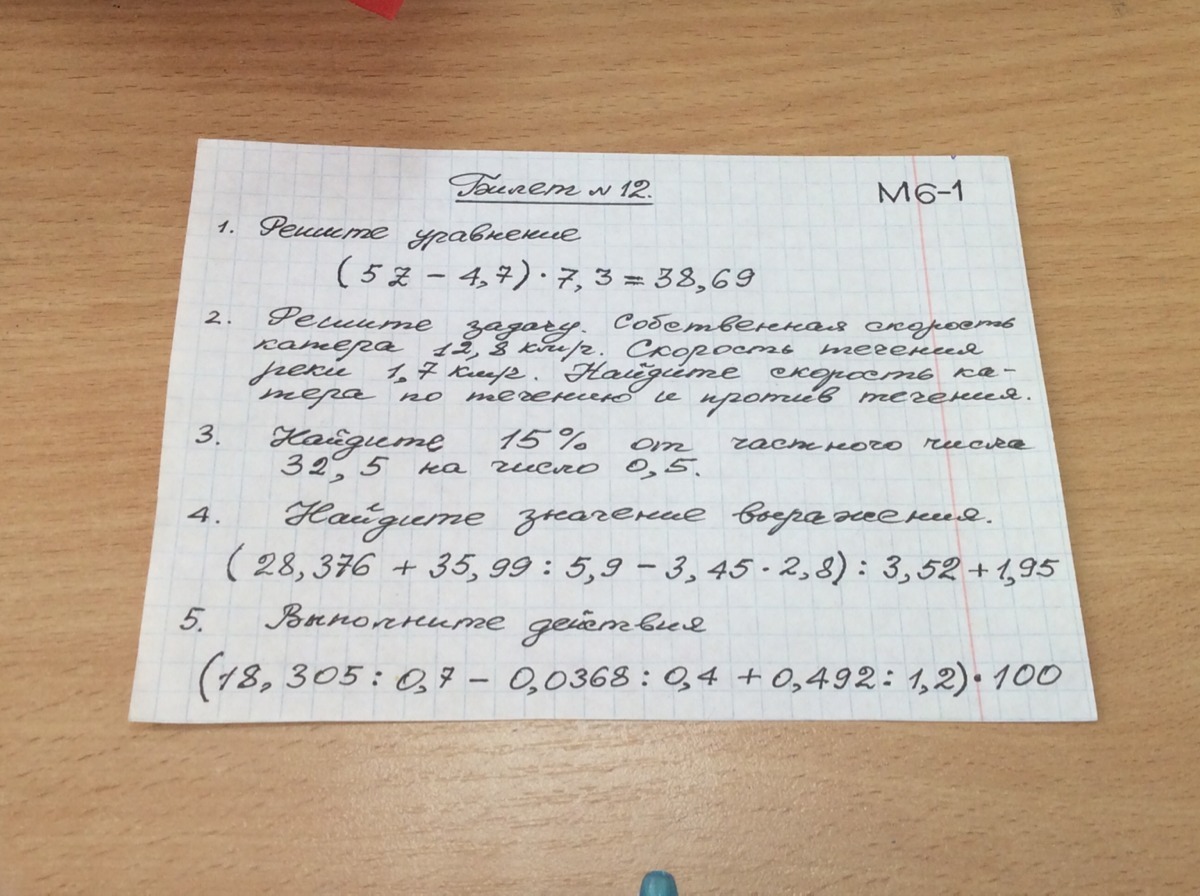 Билет № 12.
М6-1
1. Решите уравнение
(5z - 4,7) · 7,3 = 38,69
2. Решите задачу. Собственная скорость
катера 12,8 км/г. Скорость течения
реки 1,7 км/г. Найдите скорость ка-
тера по течению и против течения.
3. Найдите 15% от частного числа
32,5 на число 0,5.
4. Найдите значение выражения.
(28,376 + 35,99 : 5,9 - 3,45 · 2,8) : 3,52 + 1,95
5. Выполните действия
(18,305 : 0,7 - 0,0368 : 0,4 + 0,492 : 1,2) · 100